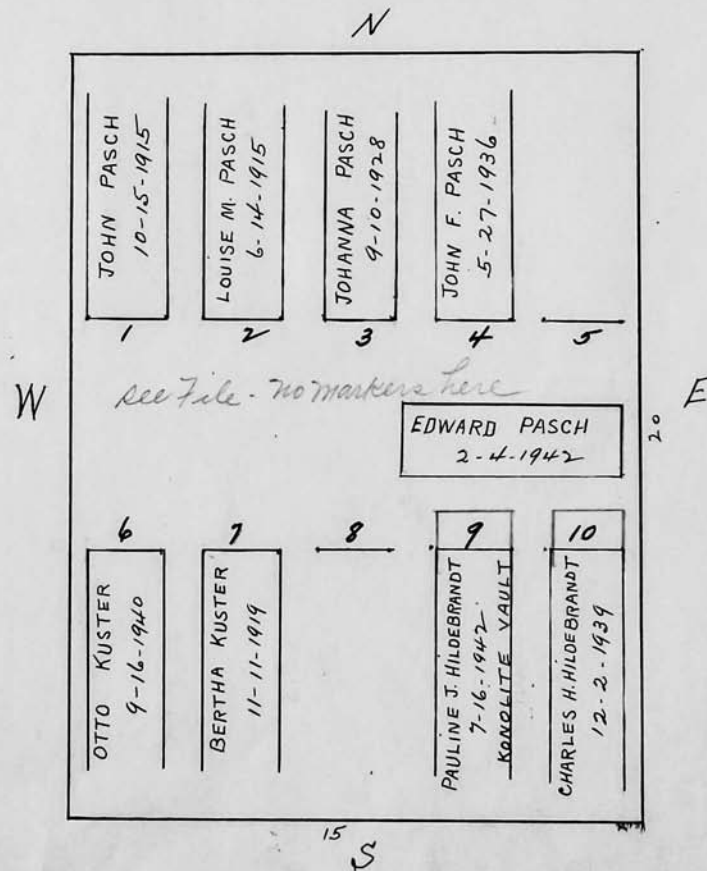 N
JOHN PASCH
10-15-1915
LOUISE M. PASCH
6-14-1915
JOHANNA PASCH
9-10-1928
JOHN F. PASCH
5-27-1936
1 2 3 4 5
W
see File - no markers here
E
EDWARD PASCH
2-4-1942
20
6 7 8 9 10
OTTO KUSTER
9-16-1940
BERTHA KUSTER
11-11-1919
PAULINE J. HILDEBRANDT
7-16-1942
KONOLITE VAULT
CHARLES H. HILDEBRANDT
12-2-1939
15
S